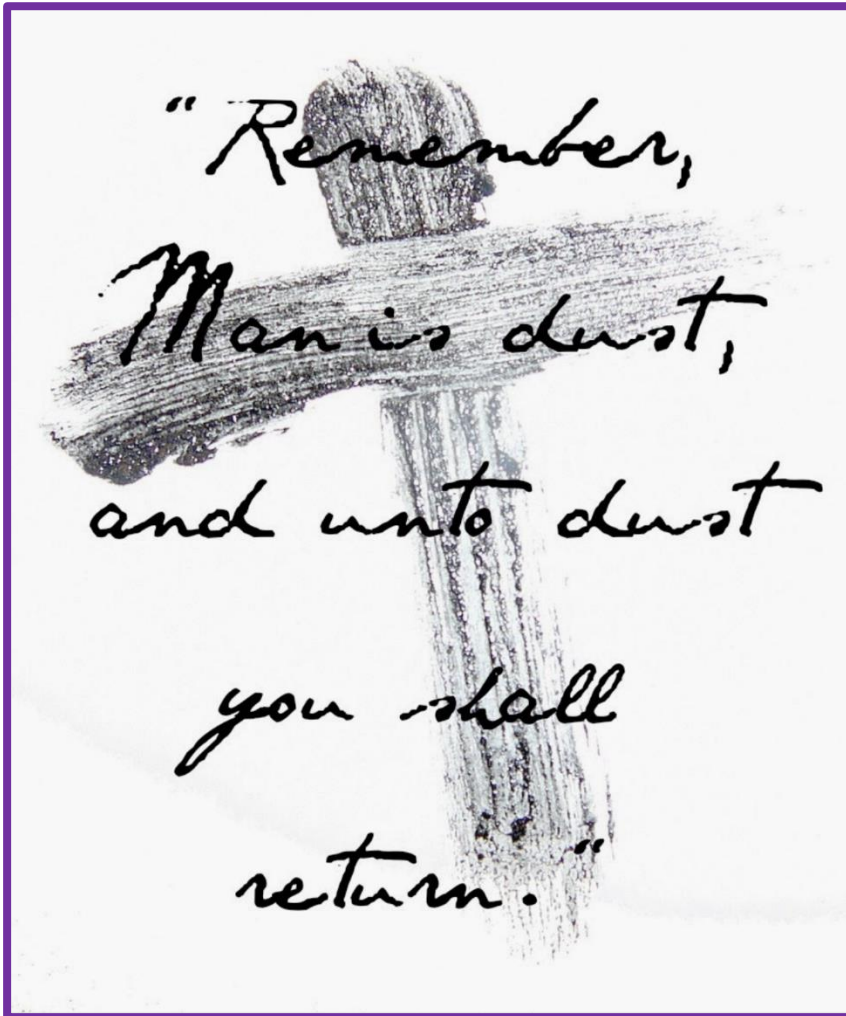 "Remember,
Man is dust,
and unto dust
you shall
return."